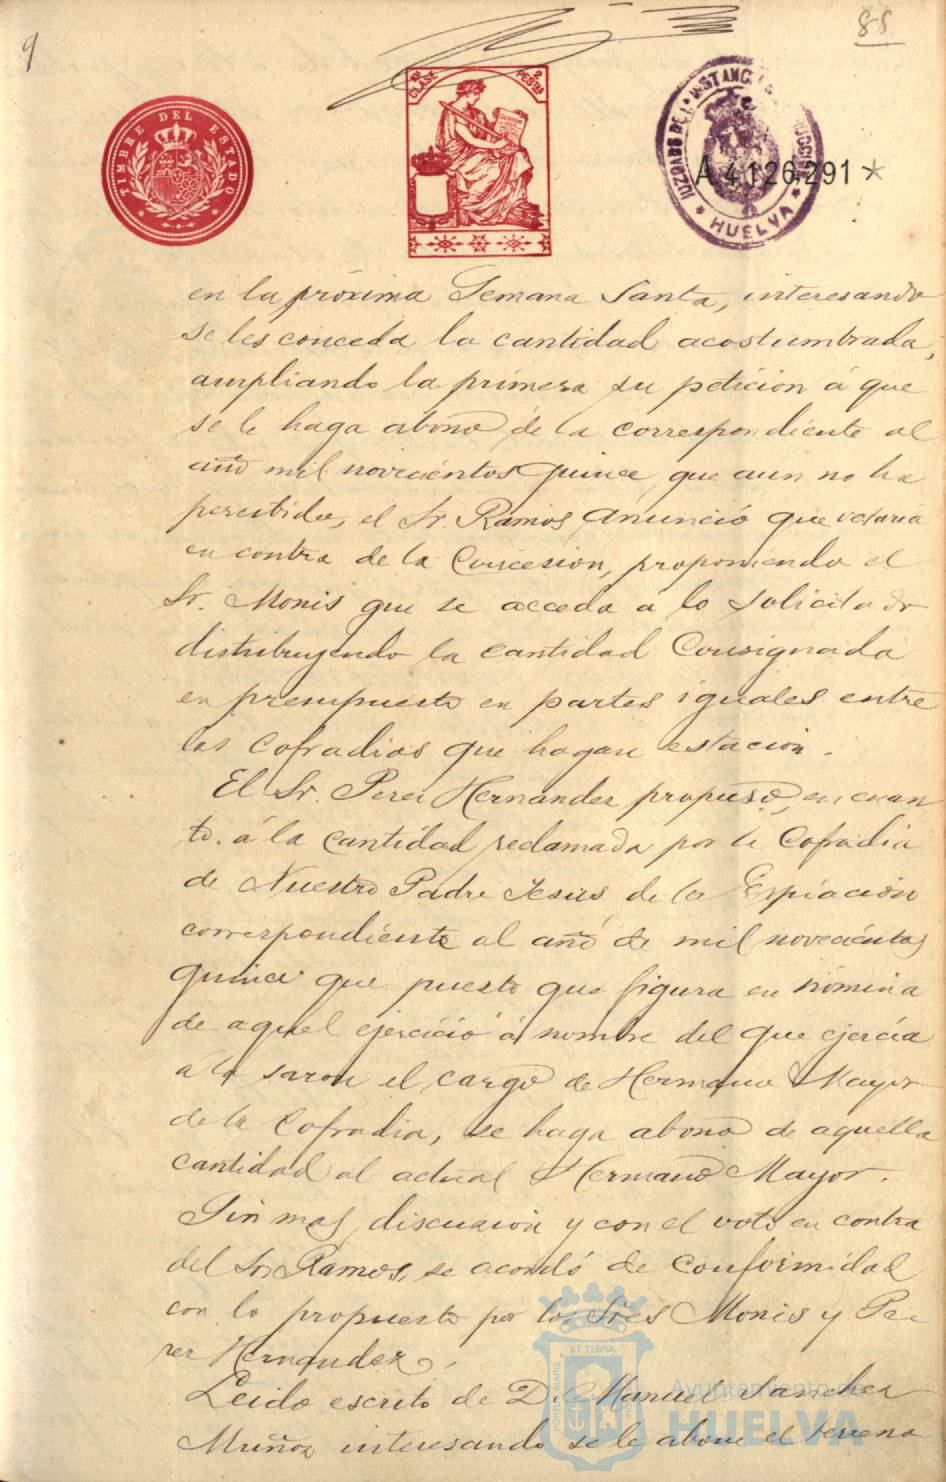 9
88
11ª CLASE
2 PESETAS
TIMBRE DEL ESTADO
JUZGADO DE 1ª INSTANCIA
HUELVA
A 4126291 *
en la próxima Semana Santa, interesando
se les conceda la cantidad acostumbrada,
ampliando la primera su peticion á que
se le haga abono de la correspondiente al
año mil novecientos quince, que aun no ha
percibido, el Sr. Ramos anunció que votaria
en contra de la Concesion, proponiendo el
Sr. Monis que se acceda á lo solicitado
distribuyendo la cantidad Consignada
en presupuesto en partes iguales entre
las Cofradias que hagan estacion.
El Sr. Perez Hernandez propuso, en cuan
to á la cantidad reclamada por la Cofradia
de Nuestro Padre Jesus de la Espiación
correspondiente al año de mil novecientos
quince que puesto que figura en nómina
de aquel ejercicio á nombre del que ejercia
á la saron el cargo de Hermano Mayor
de la Cofradia, se haga abono de aquella
cantidad al actual Hermano Mayor.
Sin mas discusion y con el voto en contra
del Sr. Ramos, se acordó de conformidad
con lo propuesto por los Sres Monis y Pe-
rez Hernandez.
Leido escrito de D. Manuel Sanchez
Muñoz interesando se le abone el terreno
ET TERRÆ
PORTUS MARIS
Ayuntamiento de
HUELVA